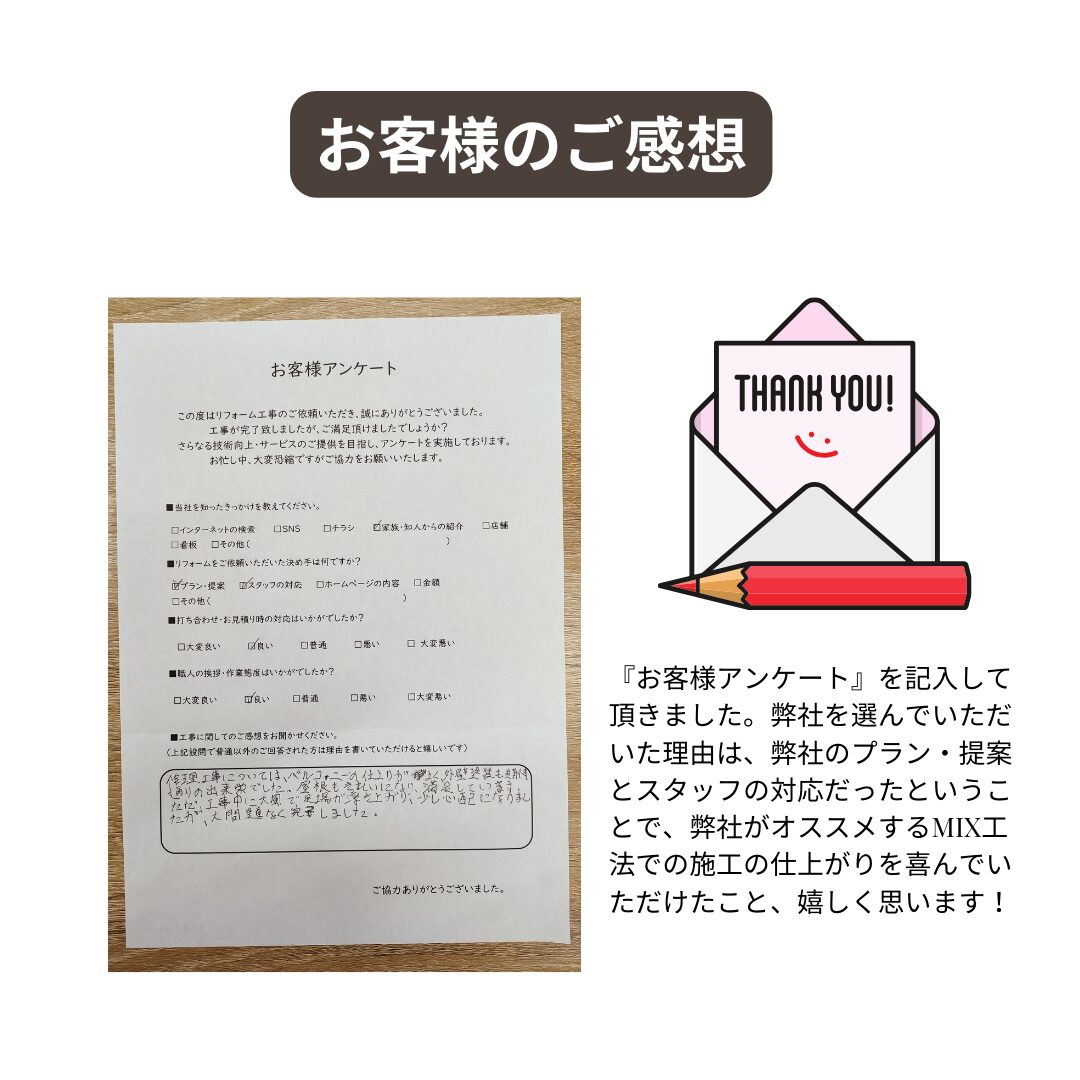 お客様のご感想
お客様アンケート
この度はリフォーム工事のご依頼いただき、誠にありがとうございました。
工事が完了致しましたが、ご満足頂けましたでしょうか？
さらなる技術向上・サービスのご提供を目指し、アンケートを実施しております。
お忙し中、大変恐縮ですがご協力をお願いいたします。
■当社を知ったきっかけを教えてください。
□インターネットの検索 □SNS □チラシ ☑家族・知人からの紹介 □店舗
□看板 □その他( )
■リフォームをご依頼いただいた決め手は何ですか？
☑プラン・提案 ☑スタッフの対応 □ホームページの内容 □金額
□その他( )
■打ち合わせ・お見積り時の対応はいかがでしたか？
□大変良い ☑良い □普通 □悪い □ 大変悪い
■職人の挨拶・作業態度はいかがでしたか？
□大変良い ☑良い □普通 □悪い □大変悪い
■工事に関してのご感想をお聞かせください。
(上記設問で普通以外のご回答された方は理由を書いていただけると嬉しいです)
修理工事については、バルコニーの仕上りが よく、外壁塗装も期待
通りの出来栄でした。屋根もきれいになり、満足しています。
ただ、工事中に大風で足場が 上がり、少し心配になりまし
たが、大問題なく完了しました。
ご協力ありがとうございました。
THANK YOU!
『お客様アンケート』を記入して
頂きました。弊社を選んでいただ
いた理由は、弊社のプラン・提案
とスタッフの対応だったというこ
とで、弊社がオススメするMIX工
法での施工の仕上がりを喜んでい
ただけたこと、嬉しく思います！